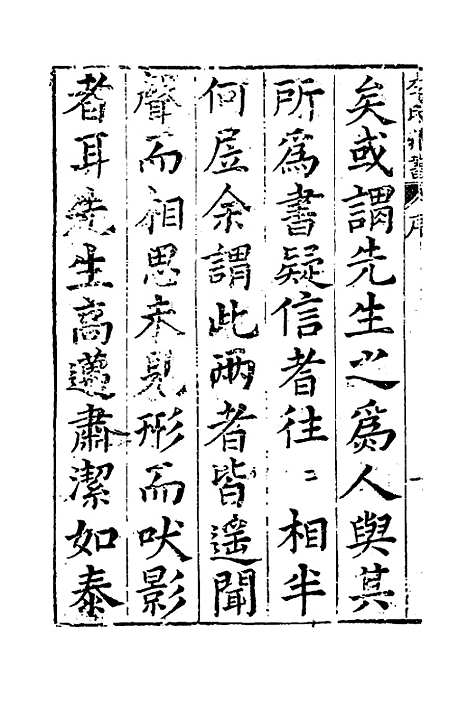 李氏焚書 序
矣或謂先生之爲人與其
所爲書疑信者往〻相半
何居余謂此兩者皆遥聞
聲而相思未見形而吠影
者耳先生高邁肅潔如泰